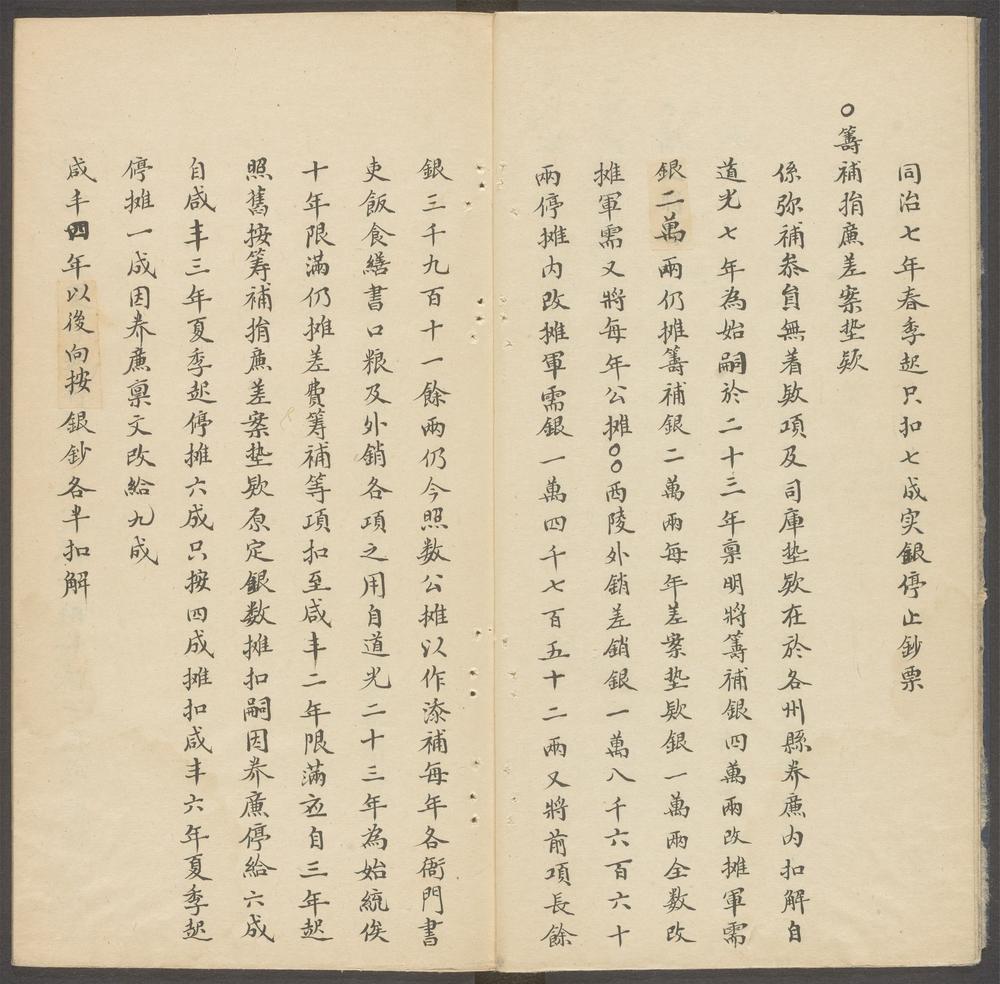 同治七年春季起只扣七成实銀停止鈔票
○籌補捐廉差案墊欵
係弥補叅員無着欵項及司庫墊欵在於各州縣养廉内扣解自
道光七年為始嗣於二十三年禀明將籌補銀四萬兩改摊軍需
銀二萬兩仍摊籌補銀二萬兩每年差案墊欵銀一萬兩全数改
摊軍需又將每年公摊○○西陵外銷差銷銀一萬八千六百六十
兩停摊内改摊軍需銀一萬四千七百五十二兩又將前項長餘
銀三千九百十一餘兩仍今照数公摊以作添補每年各衙門書
吏飯食繕書口粮及外銷各項之用自道光二十三年為始統俟
十年限滿仍摊差費筹補等項扣至咸丰二年限滿應自三年起
照舊按筹補捐廉差案墊欵原定銀数摊扣嗣因养廉停給六成
自咸丰三年夏季起停摊六成只按四成摊扣咸丰六年夏季起
停摊一成因养廉禀文改給九成
咸丰四年以後向按銀鈔各半扣解